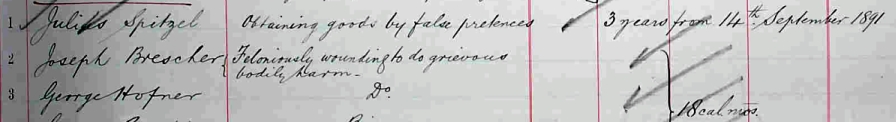 1 Julius Spitzel Obtaining goods by false pretences 3 years from 14th September 1891
2 Joseph Brescher Feloniously wounding to do grievous
bodily harm -
3 George Hofner Do.
18 cal mos.